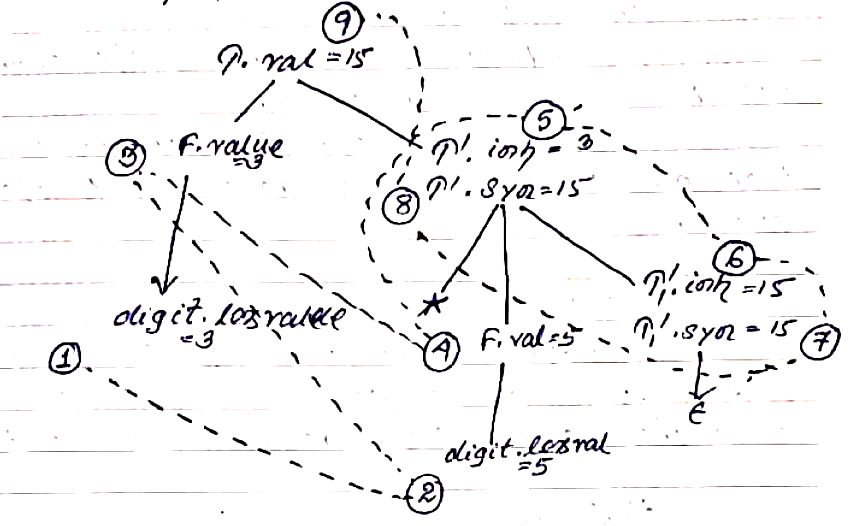 9
T. val = 15
3 F. value
= 3
5
T'. inh = 3
8 T'. syn = 15
6
T₁'. inh = 15
*
digit. lexvalue
= 3
T₁'. syn = 15
7
1
4 F. val = 5
ϵ
digit. lexval
= 5
2